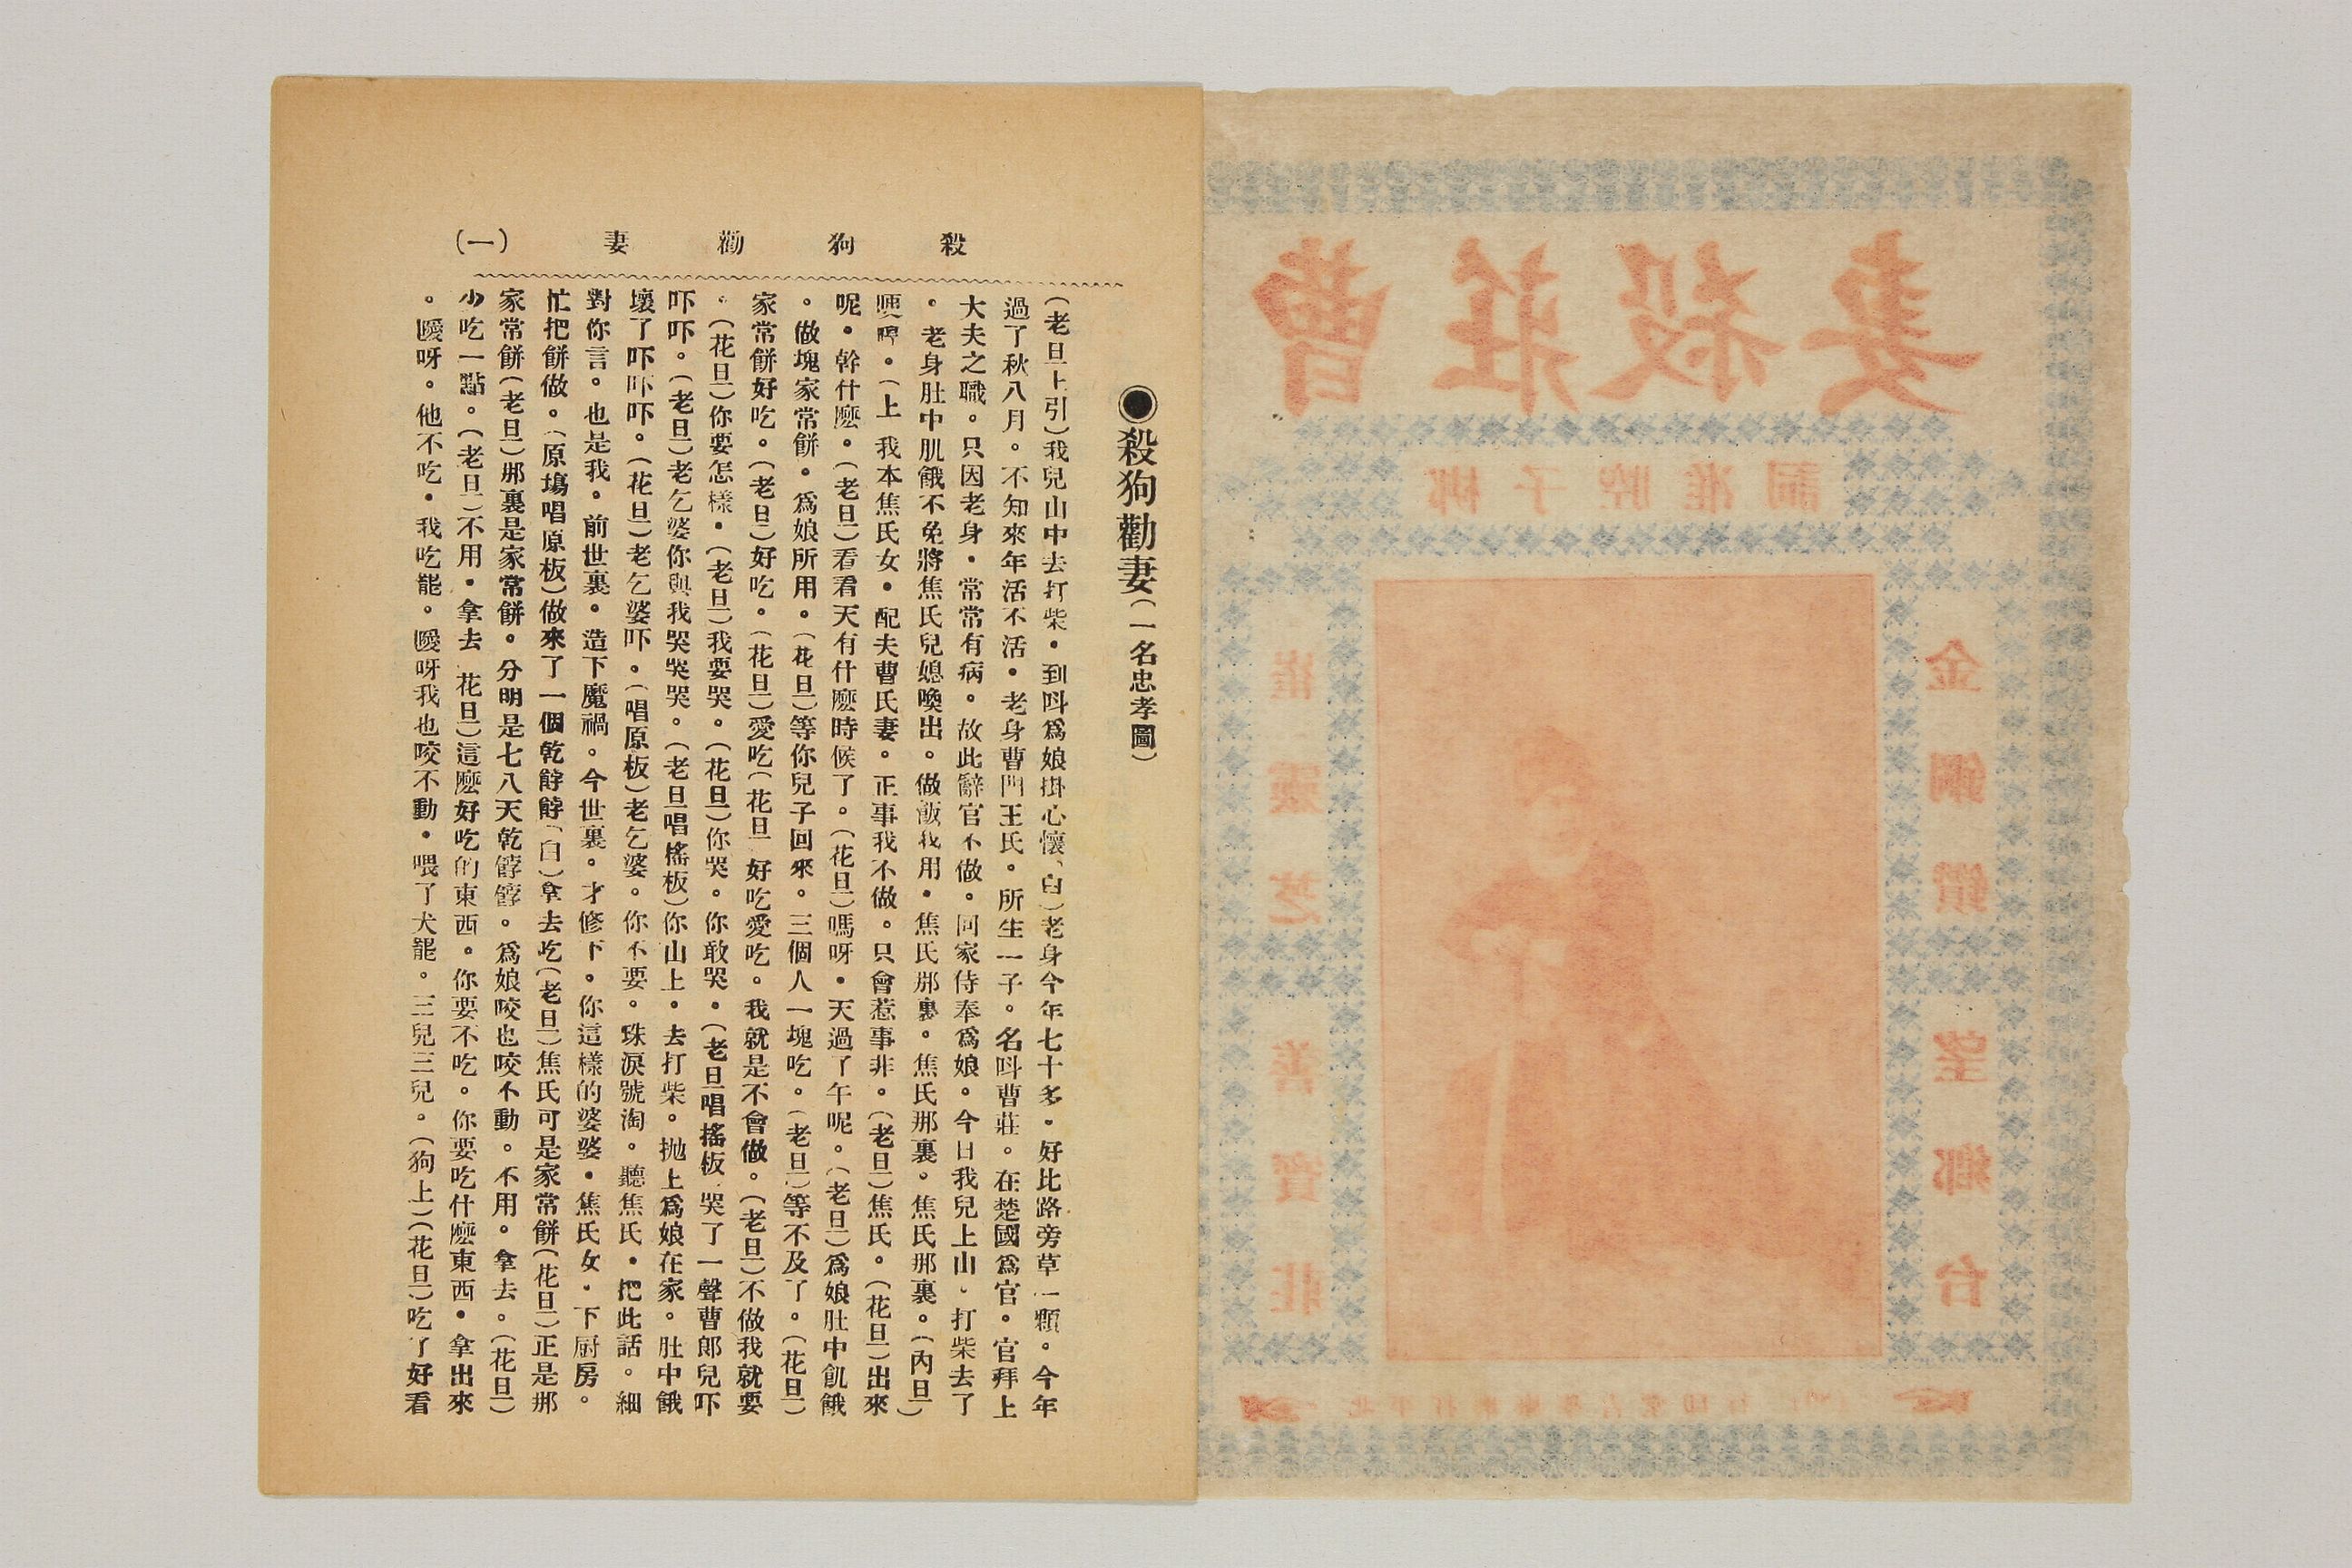 殺狗勸妻 (一)
◉殺狗勸妻(一名忠孝圖)
(老旦上引)我兒山中去打柴・到呌爲娘掛心懷(白)老身今年七十多・好比路旁草一顆。今年
過了秋八月。不知來年活不活・老身曹門王氏。所生一子。名呌曹莊。在楚國爲官。官拜上
大夫之職。只因老身・常常有病。故此辭官不做。回家侍奉爲娘。今日我兒上山・打柴去了
。老身肚中肌餓不免將焦氏兒媳喚出。做飯我用・焦氏那裏。焦氏那裏。焦氏那裏。(內旦)
㗏。(上 我本焦氏女・配夫曹氏妻。正事我不做。只會惹事非。(老旦)焦氏。(花旦)出來
呢・幹什麽。(老旦)看看天有什麽時候了。(花旦)嗎呀・天過了午呢。(老旦)爲娘肚中飢餓
。做塊家常餅。爲娘所用。(花旦)等你兒子回來。三個人一塊吃。(老旦)等不及了。(花旦)
家常餅好吃。(老旦)好吃。(花旦)愛吃(花旦 好吃愛吃。我就是不會做。(老旦)不做我就要
。(花旦)你要怎樣・(老旦)我要哭。(花旦)你哭。你敢哭・(老旦唱搖板 哭了一聲曹郎兒吓
吓吓。(老旦)老乞婆你與我哭哭哭。(老旦唱搖板)你山上・去打柴。拋上爲娘在家。肚中餓
壞了吓吓吓。(花旦)老乞婆吓・(唱原板)老乞婆。你不要。珠淚號淘。聽焦氏・把此話。細
對你言。也是我・前世裏・造下魔禍。今世裏。才修下。你這樣的婆婆・焦氏女・下厨房。
忙把餅做。(原塲唱原板)做來了一個乾餑餑(白)拿去吃(老旦)焦氏可是家常餅(花旦)正是那
家常餅(老旦)那裏是家常餅。分明是七八天乾餑餑。爲娘咬也咬不動。不用。拿去。(花旦)
少吃一點。(老旦)不用・拿去 花旦)這麽好吃的東西。你要不吃。你要吃什麽東西・拿出來
。噯呀。他不吃・我吃罷。噯呀我也咬不動・喂了犬罷。三兒三兒。(狗上)(花旦)吃了好看
曹莊殺妻
梆子腔准詞
金鋼鑽 望鄉台
崔靈芝 善寶莊